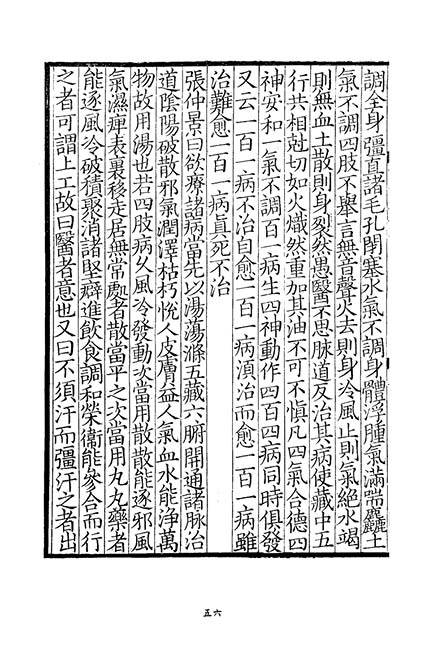 調全身彊直諸毛孔閉塞水氣不調身體浮腫氣滿喘麤土
氣不調四肢不舉言無音聲火去則身冷風止則氣絕水竭
則無血土散則身裂然愚醫不思脉道反治其病使藏中五
行共相尅切如火熾然重加其油不可不慎凡四氣合德四
神安和一氣不調百一病生四神動作四百四病同時俱發
又云一百一病不治自愈一百一病須治而愈一百一病雖
治難愈一百一病真死不治
張仲景曰欲療諸病當先以湯蕩滌五藏六腑開通諸脉治
道陰陽破散邪氣潤澤枯朽悅人皮膚益人氣血水能淨萬
物故用湯也若四肢病久風冷發動次當用散散能逐邪風
氣濕痺表裏移走居無常處者散當平之次當用丸丸藥者
能逐風冷破積聚消諸堅癖進飲食調和榮衛能參合而行
之者可謂上工故曰醫者意也又曰不須汗而彊汗之者出
五六